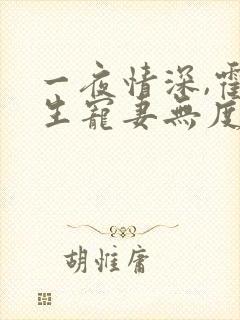 一夜情深,霍
生寵妻無度
胡惟庸